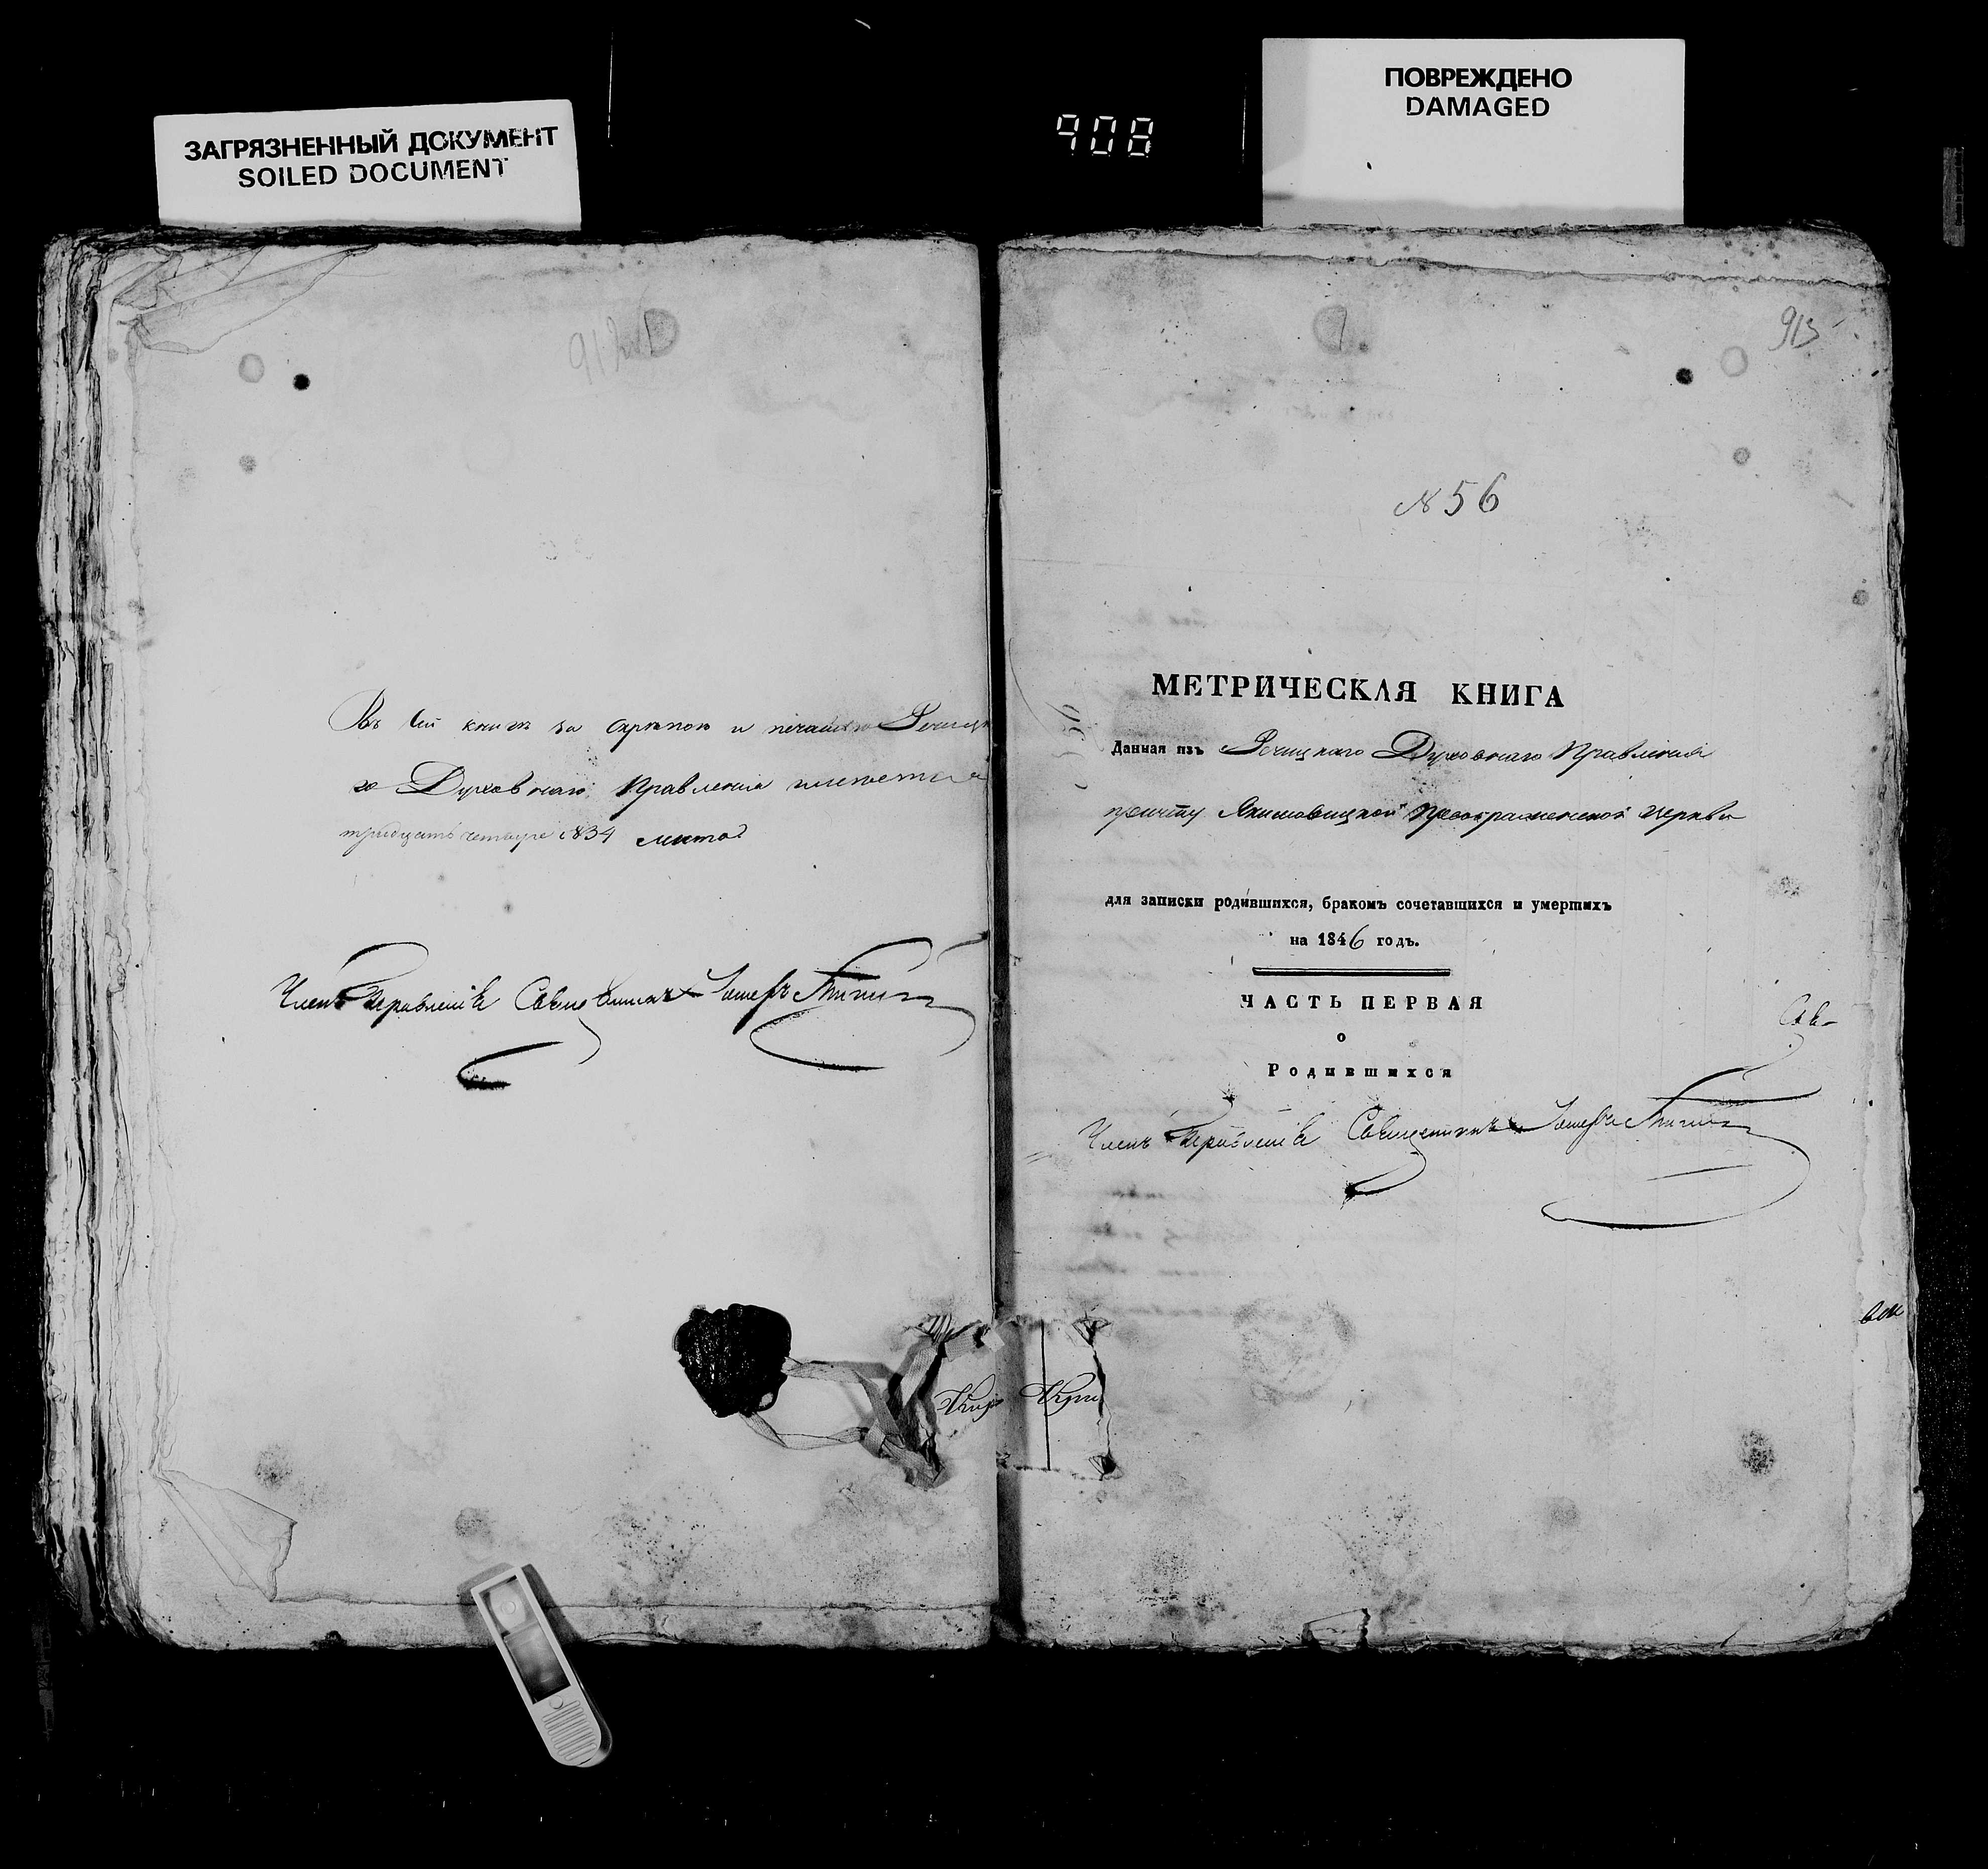 ЗАГРЯЗНЕННЫЙ ДОКУМЕНТ
SOILED DOCUMENT
908
ПОВРЕЖДЕНО
DAMAGED
Въ сей книгѣ за скрѣпою и печатью Речицка
го Духовнаго Правленія
тридцать четыре №34 листов
Членъ Правленія Священникъ
913
№ 56
МЕТРИЧЕСКАЯ КНИГА
Данная изъ Речицкаго Духовнаго Правленія
причту Якимовицкой Преображенской церкви
для записки родившихся, бракомъ сочетавшихся и умершихъ
на 1846 годъ.
ЧАСТЬ ПЕРВАЯ
о
Родившихся
Членъ Правленія Священникъ